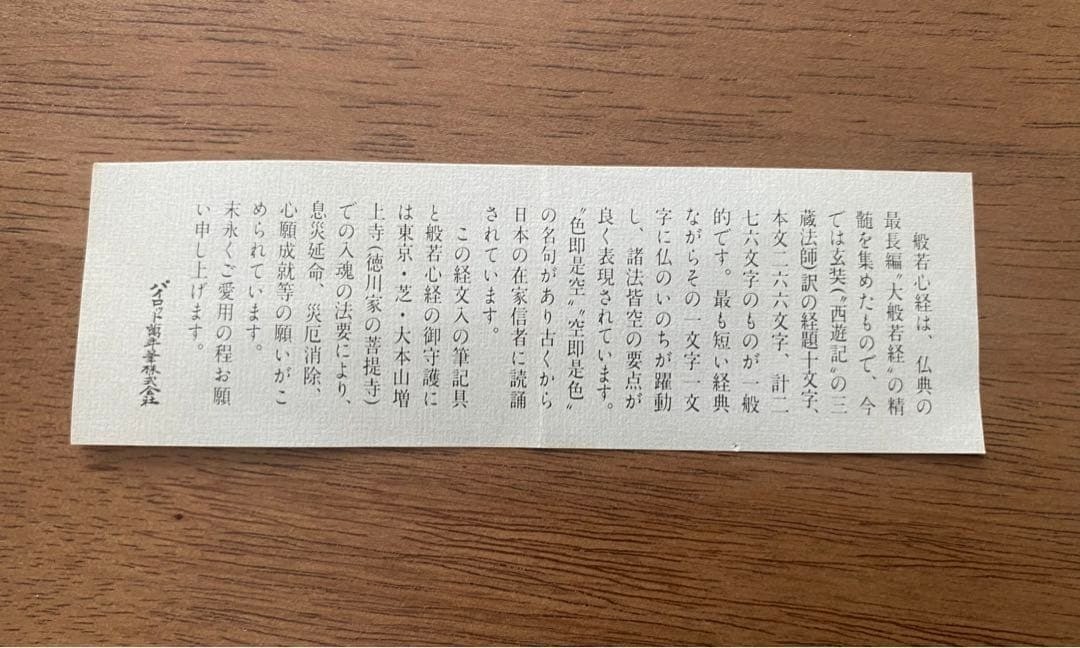 般若心経は、仏典の
最長編〝大般若経〟の精
髄を集めたもので、今
では玄奘(〝西遊記〟の三
蔵法師)訳の経題十文字、
本文二六六文字、計二
七六文字のものが一般
的です。最も短い経典
ながらその一文字一文
字に仏のいのちが躍動
し、諸法皆空の要点が
良く表現されています。
〝色即是空〟〝空即是色〟
の名句があり古くから
日本の在家信者に読誦
されています。
この経文入の筆記具
と般若心経の御守護に
は東京・芝・大本山増
上寺(徳川家の菩提寺)
での入魂の法要により、
息災延命、災厄消除、
心願成就等の願いがこ
められています。
末永くご愛用の程お願
い申し上げます。
パイロット萬年筆株式会社